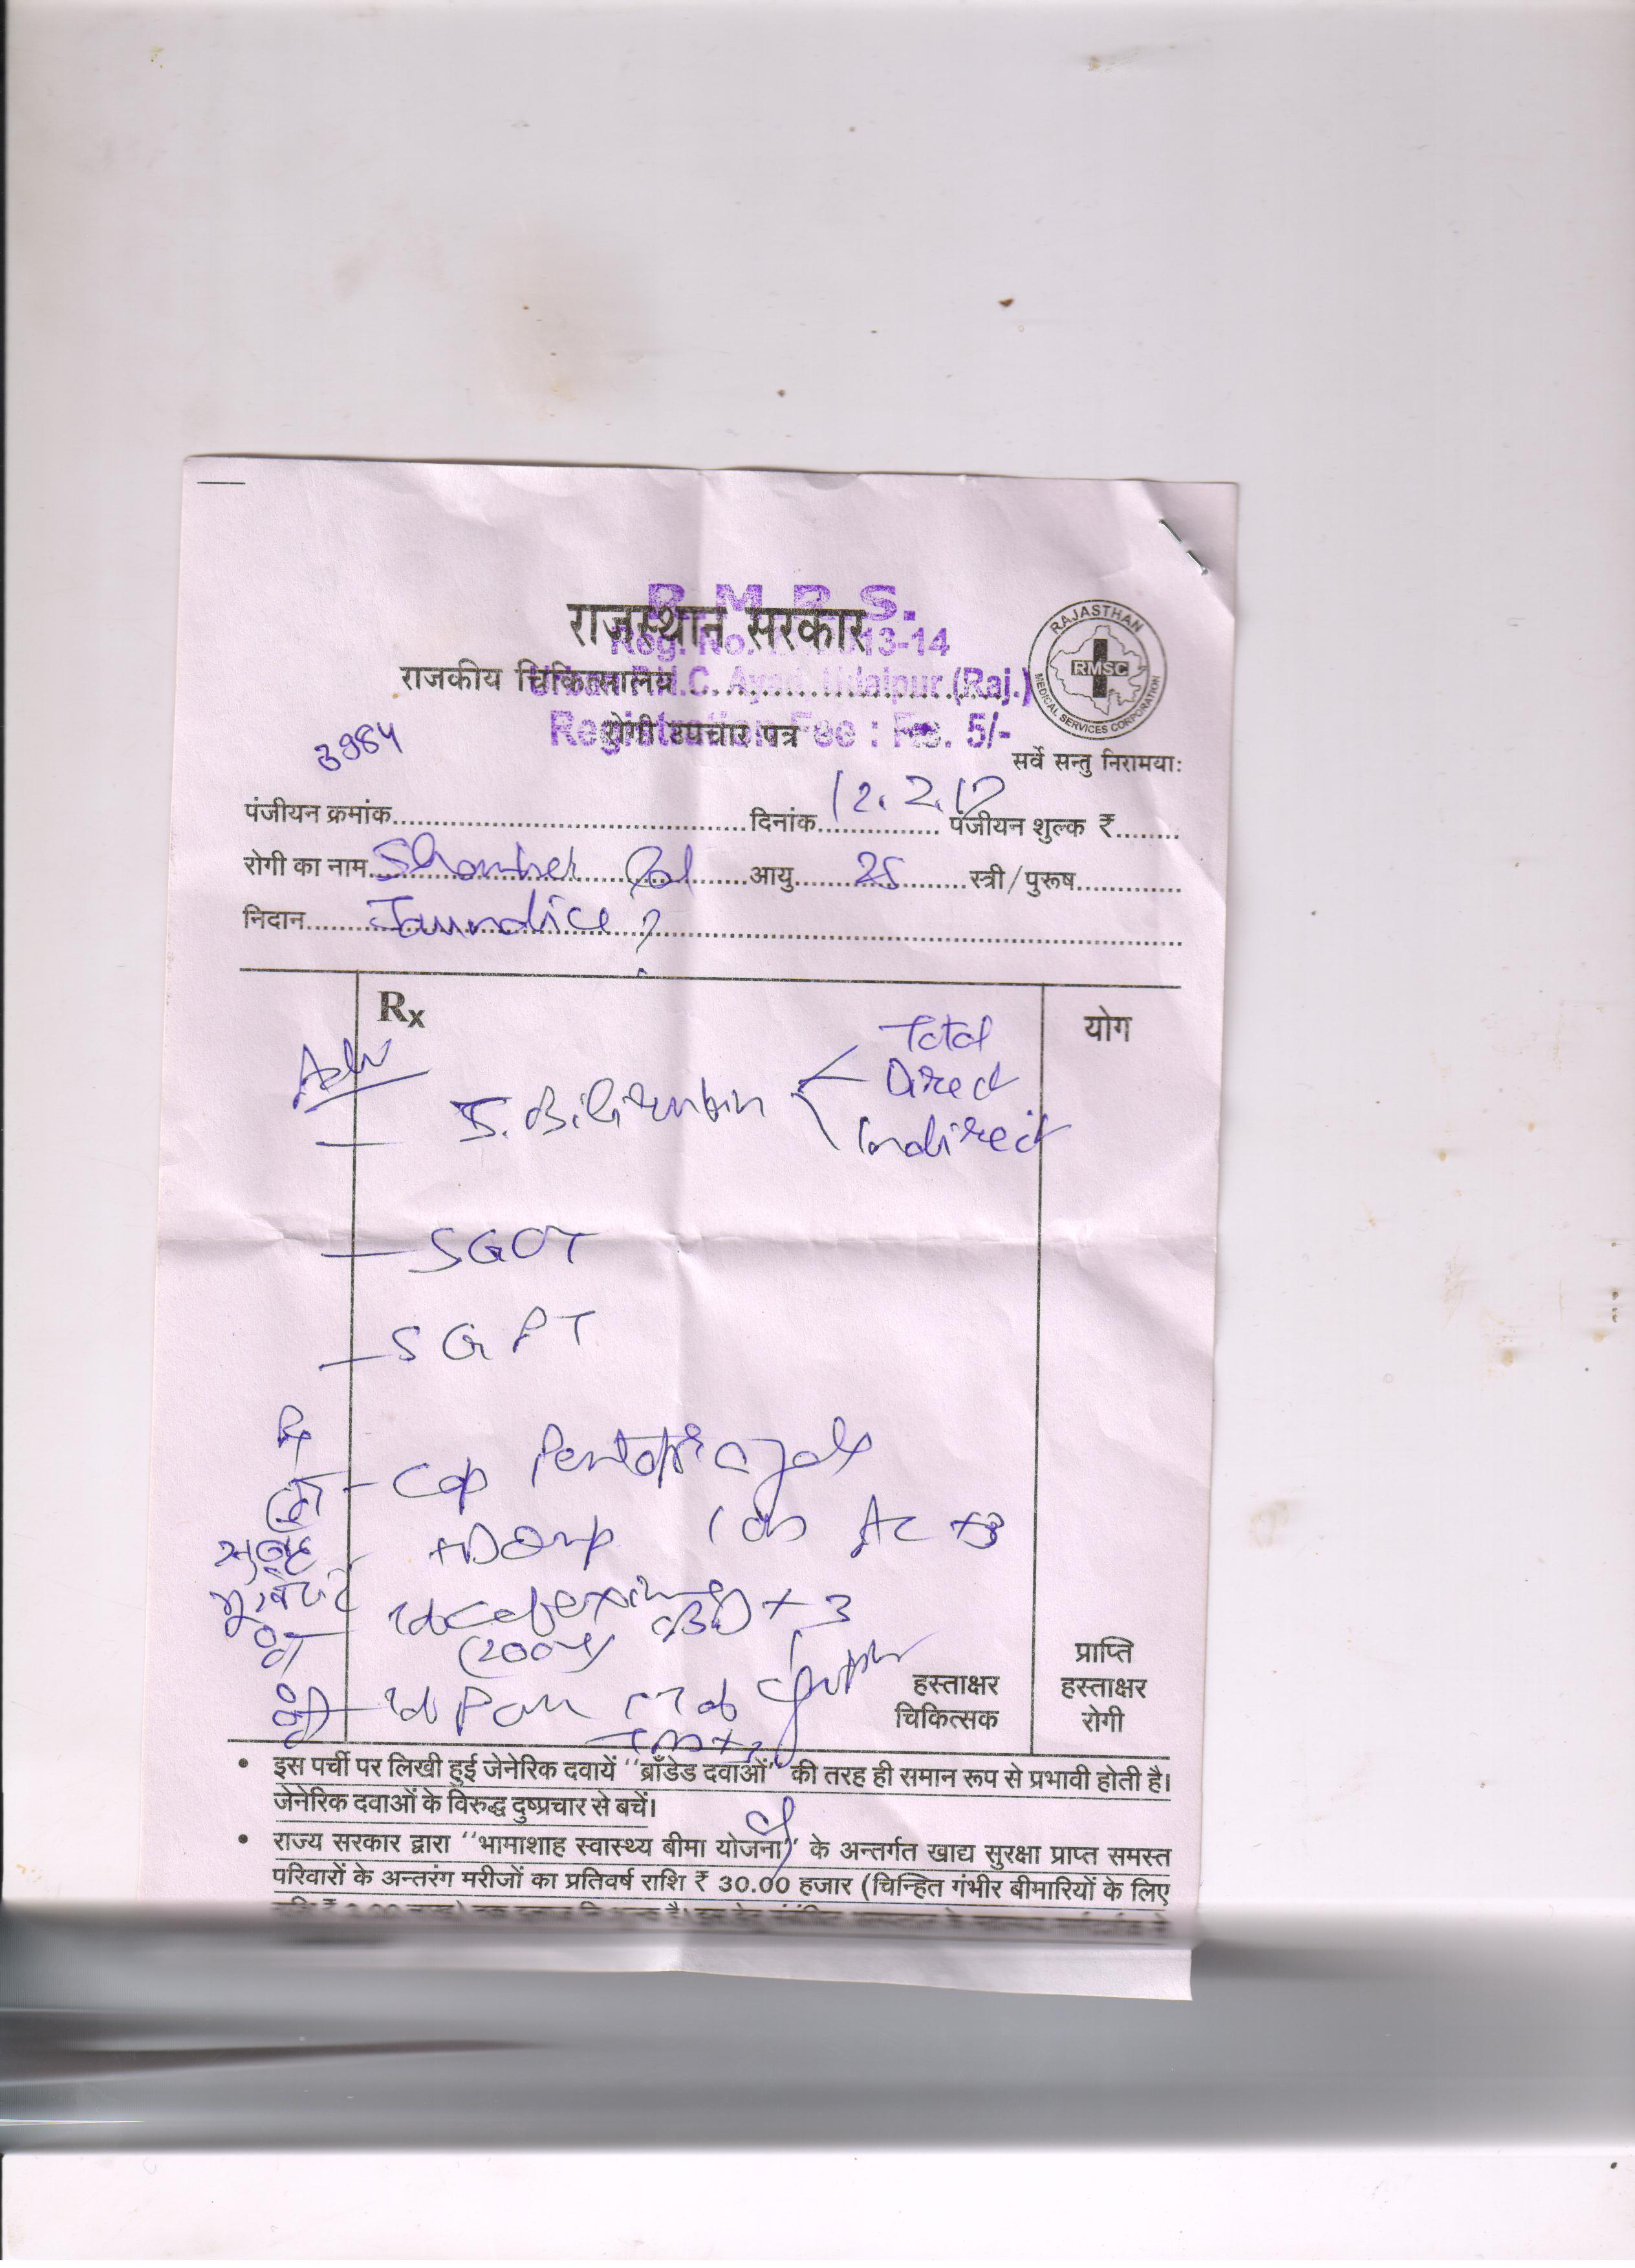 R. M. R. S.
राजस्थान सरकार
Reg. No. 13-14
राजकीय चिकित्सालय
Udaipur (Raj.)
Registration Fee : Rs. 5/-
रोगी उपचार पत्र
RAJASTHAN
RMSC
MEDICAL SERVICES CORPORATION
सर्वे सन्तु निरामयाः
3984
पंजीयन क्रमांक दिनांक 12.2.17 पंजीयन शुल्क ₹
रोगी का नाम आयु 25 स्त्री/पुरूष
निदान Jaundice ?
Rx योग
Adv
S. Bilirubin Total
Direct
Indirect
- SGOT
- SGPT
Rx
- Cap
सुबह +Domp AC x 3
भूखे पेट
(200 BD x 3
हस्ताक्षर
चिकित्सक
प्राप्ति
हस्ताक्षर
रोगी
• इस पर्ची पर लिखी हुई जेनेरिक दवायें ''ब्राँडेड दवाओं'' की तरह ही समान रूप से प्रभावी होती है।
जेनेरिक दवाओं के विरुद्ध दुष्प्रचार से बचें।
• राज्य सरकार द्वारा ''भामाशाह स्वास्थ्य बीमा योजना'' के अन्तर्गत खाद्य सुरक्षा प्राप्त समस्त
परिवारों के अन्तरंग मरीजों का प्रतिवर्ष राशि ₹ 30.00 हजार (चिन्हित गंभीर बीमारियों के लिए